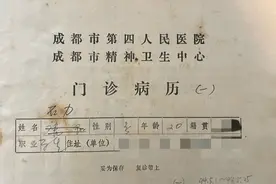 成都市第四人民医院
成都市精神卫生中心
门诊病历(一)
石力
姓名 性别 年龄 20 籍贯
职业 住址(单位)
妥为保存 复诊带上